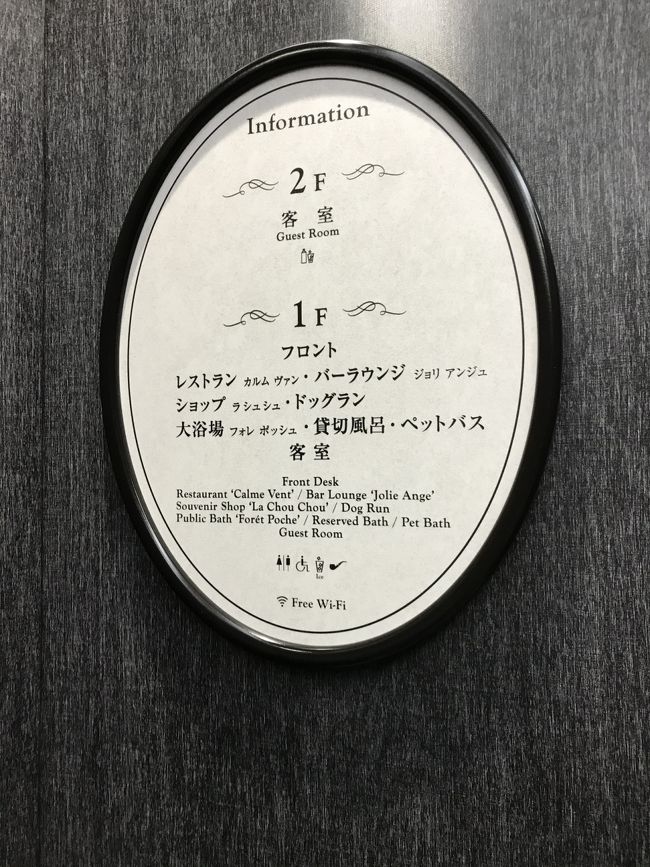 Information
2F
客室
Guest Room
1F
フロント
レストラン カルム ヴァン・バーラウンジ ジョリ アンジュ
ショップ ラシュシュ・ドッグラン
大浴場 フォレ ポッシュ・貸切風呂・ペットバス
客室
Front Desk
Restaurant ‘Calme Vent’ / Bar Lounge ‘Jolie Ange’
Souvenir Shop ‘La Chou Chou’ / Dog Run
Public Bath ‘Forét Poche’ / Reserved Bath / Pet Bath
Guest Room
Ice
Free Wi-Fi